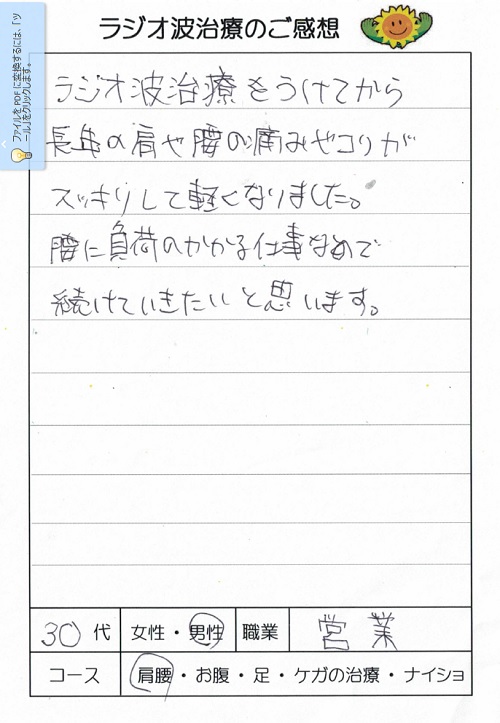 ラジオ波治療のご感想
ファイルをPDFに変換するには、「ツ
ール」をクリックします。
ラジオ波治療をうけてから
長年の肩や腰の痛みやコリが
スッキリして軽くなりました。
腰に負荷のかかる仕事なので
続けていきたいと思います。
30代 女性・男性 職業 営業
コース 肩腰・お腹・足・ケガの治療・ナイショ